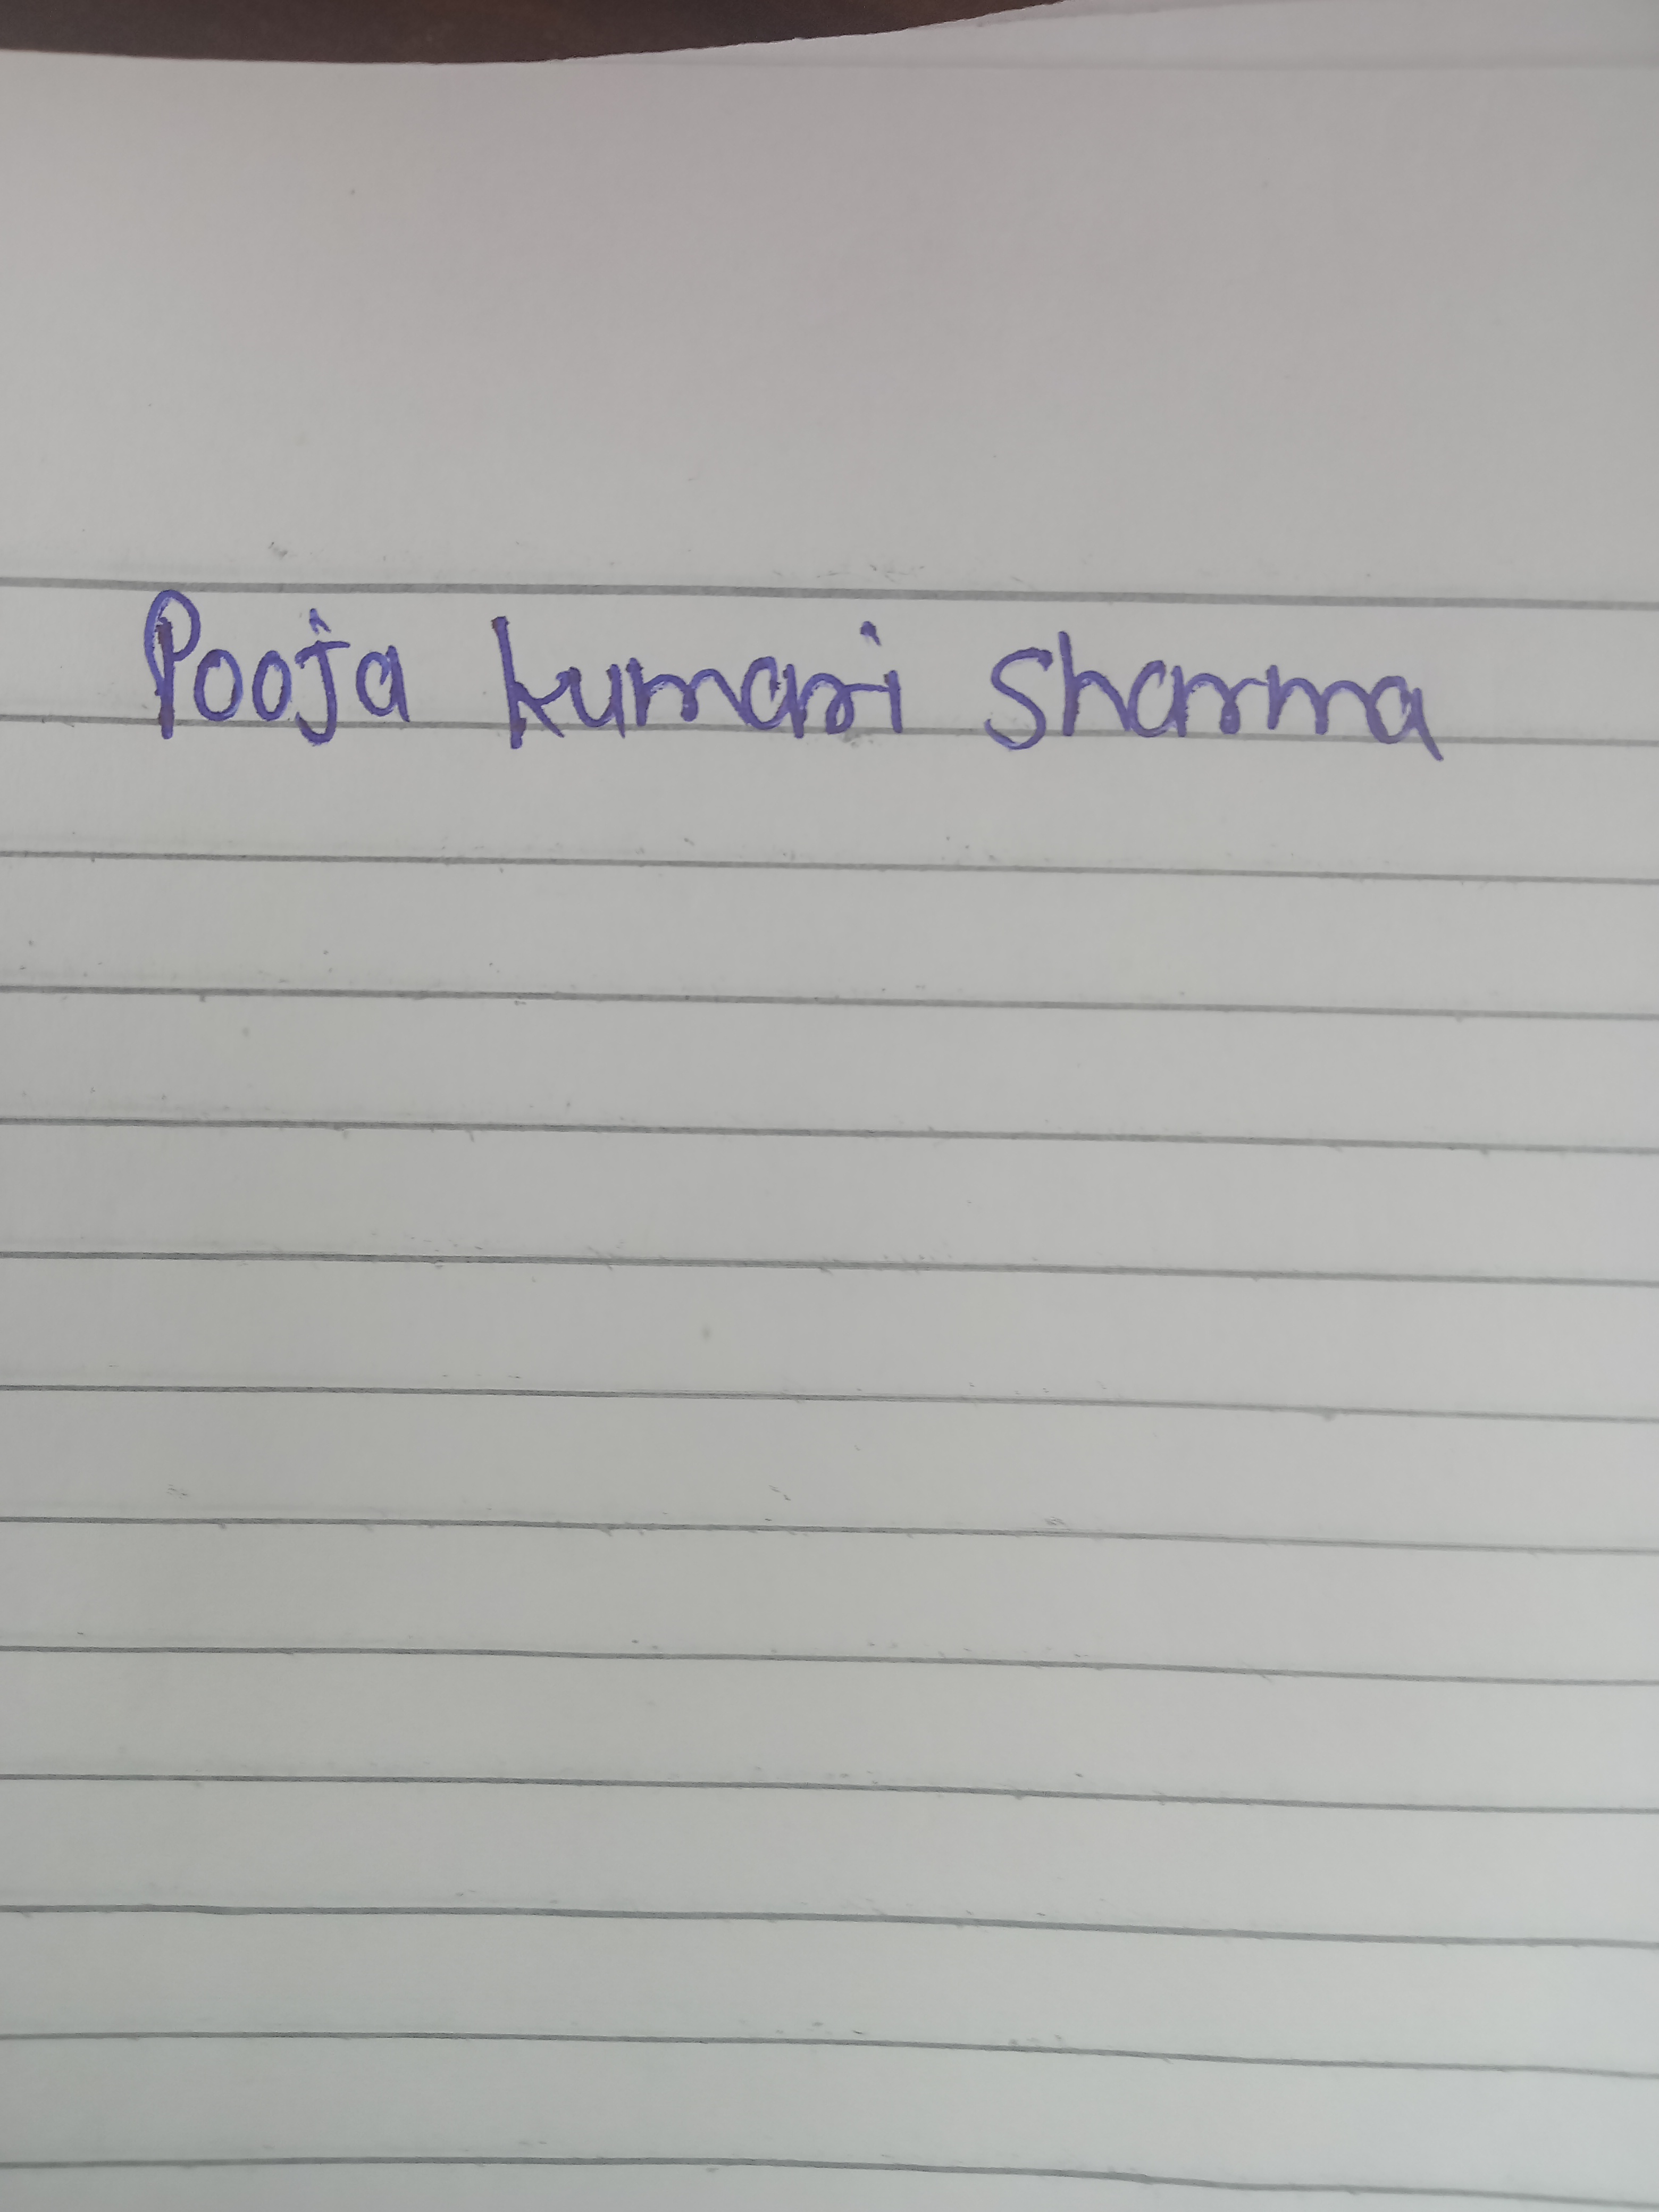 Pooja kumari Sharma